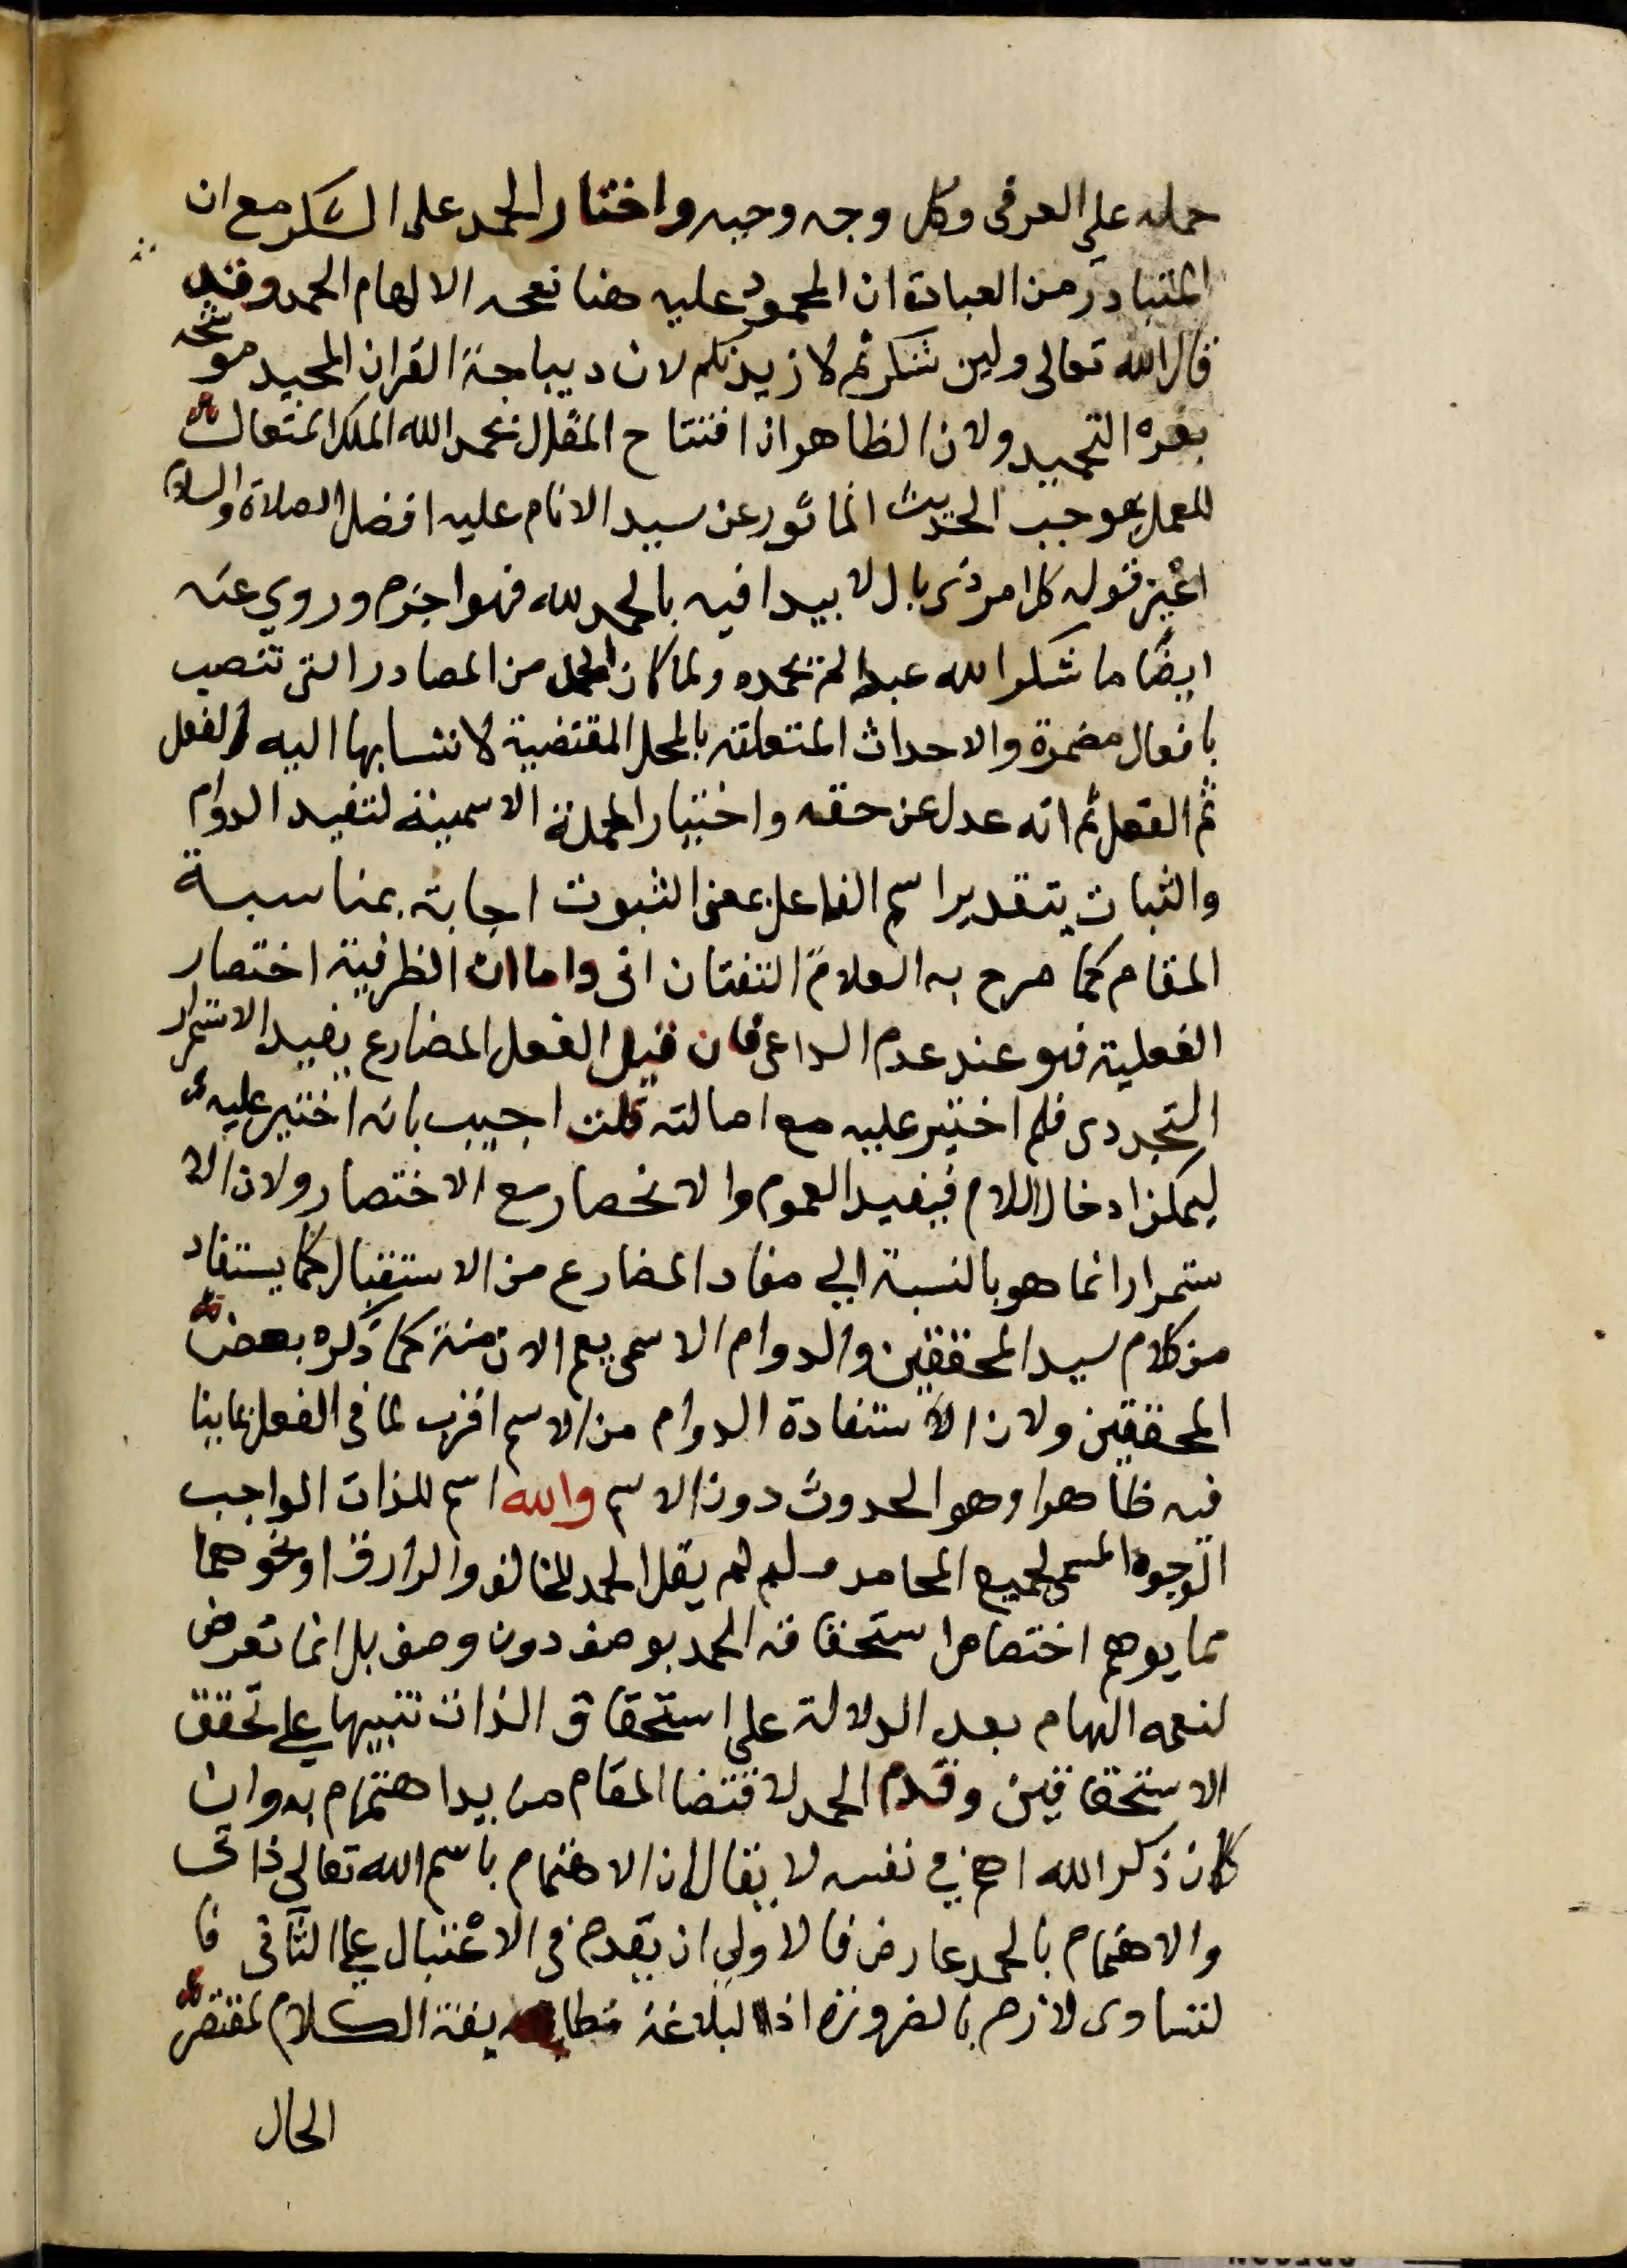 حمله على العرفى وكل وجه وجيه واختار الحمد على الشكر مع ان
المتبادر من العبادة ان المحمود عليه هنا نعمه الالهام الحمد وقد
قال الله تعالى ولين شكرتم لازيدنكم لان ديباجة القران المجيد موشحه
بغره التحميد ولان الظاهر ان افتتاح المقال بحمد الله الملك المتعال
للعمل بموجب الحديث الماثور عن سيد الانام عليه افضل الصلاة والسلام
اعنى قوله كل امر ذى بال لا يبدا فيه بالحمد لله فهو اجزم وروي عنه
ايضًا ما شكر الله عبد لم يحمده ولما كان الحمد من المصادر التى تنصب
بافعال مضمرة والاحداث المتعلقه بالمحل المقتضية لانتسابها اليه والفعل
ثم الفعل ثم انه عدل عن حقه واختيار الجملة الاسمية لتفيد الدوام
والثبات بتقدير اسم الفاعل بمعنى الثبوت اجابة بمناسبة
المقام كما صرح به العلامة التفتازانى واما ان الظرفية اختصار
الفعلية فهو عند عدم الداعى فان قيل الفعل المضارع يفيد الاستمرار
التجددى فلم اختير عليه مع اصالته قلت اجيب بانه اختير عليه
ليمكن ادخال اللام فيفيد العموم والانحصار مع الاختصار ولان الا
ستمرار انما هو بالنسبة الى مفاد المضارع من الاستقبال كما يستفاد
من كلام سيد المحققين والدوام الاسمى يعم الازمنة كما ذكره بعض
المحققين ولان الاستفادة الدوام من الاسم اقرب لما فى الفعل ما ينا
فيه ظاهرا وهو الحدوث دون الاسم والله اسم للذات الواجب
الوجود المسمى لجميع المحامد ولم يقل الحمد للخالق والرازق او نحوهما
مما يوهم اختصاص استحقاقه الحمد بوصف دون وصف بل انما تعرض
لنعمه الهام بعد الدلالة على استحقاق الذات تنبيها على تحقق
الاستحقاقين وقدم الحمد لاقتضا المقام مزيد اهتمام به وان
كان ذكر الله اهم في نفسه لا يقال ان الاهتمام باسم الله تعالى ذاتى
والاهتمام بالحمد عارض فالاولى ان يقدم فى الاعتبال على الثانى فا
لتساوى لازم بالضرورة اذ البلاغة مطابقة الكلام لمقتضى
الحال